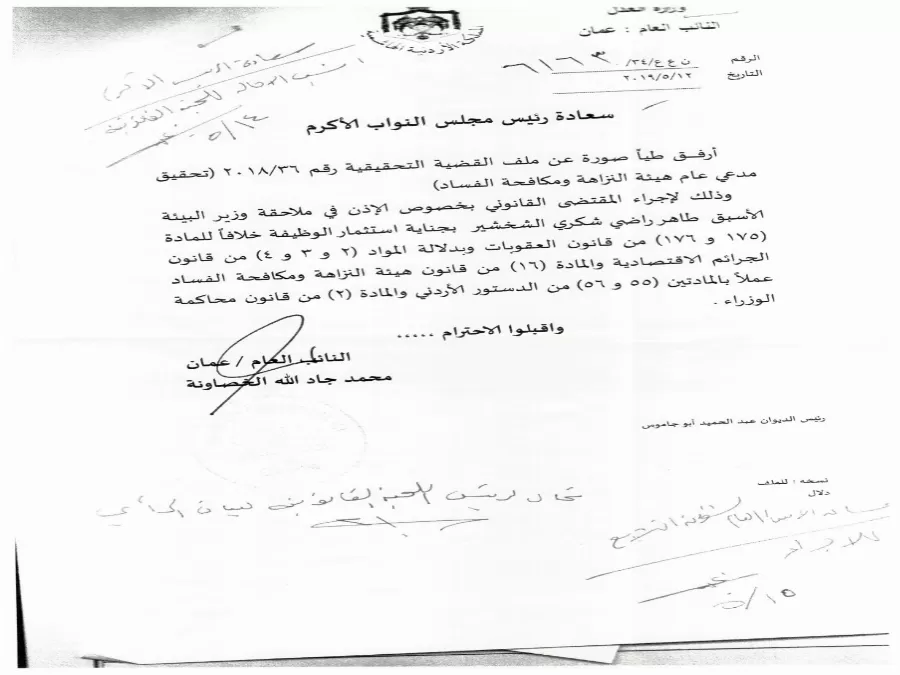 وزارة العدل
النائب العام : عمان
الرقم ن ع ع/٣٤/ ٦١٦٣
التاريخ ٢٠١٩/٥/١٢
سعادة الرئيس الأكرم
للجنة القانونية
٥/١٤
سعادة رئيس مجلس النواب الأكرم
أرفق طياً صورة عن ملف القضية التحقيقية رقم ٢٠١٨/٣٦ (تحقيق
مدعي عام هيئة النزاهة ومكافحة الفساد)
وذلك لإجراء المقتضى القانوني بخصوص الإذن في ملاحقة وزير البيئة
الأسبق طاهر راضي شكري الشخشير بجناية استثمار الوظيفة خلافاً للمادة
(١٧٥ و ١٧٦) من قانون العقوبات وبدلالة المواد (٢ و ٣ و ٤) من قانون
الجرائم الاقتصادية والمادة (١٦) من قانون هيئة النزاهة ومكافحة الفساد
عملاً بالمادتين (٥٥ و ٥٦) من الدستور الأردني والمادة (٢) من قانون محاكمة
الوزراء .
واقبلوا الاحترام .....
النائب العام / عمان
محمد جاد الله الخصاونة
رئيس الديوان عبد الحميد أبو جاموس
نسخه : للملف
دلال
تحال لرئيس اللجنة القانونية لبيان الرأي
٥/١٥